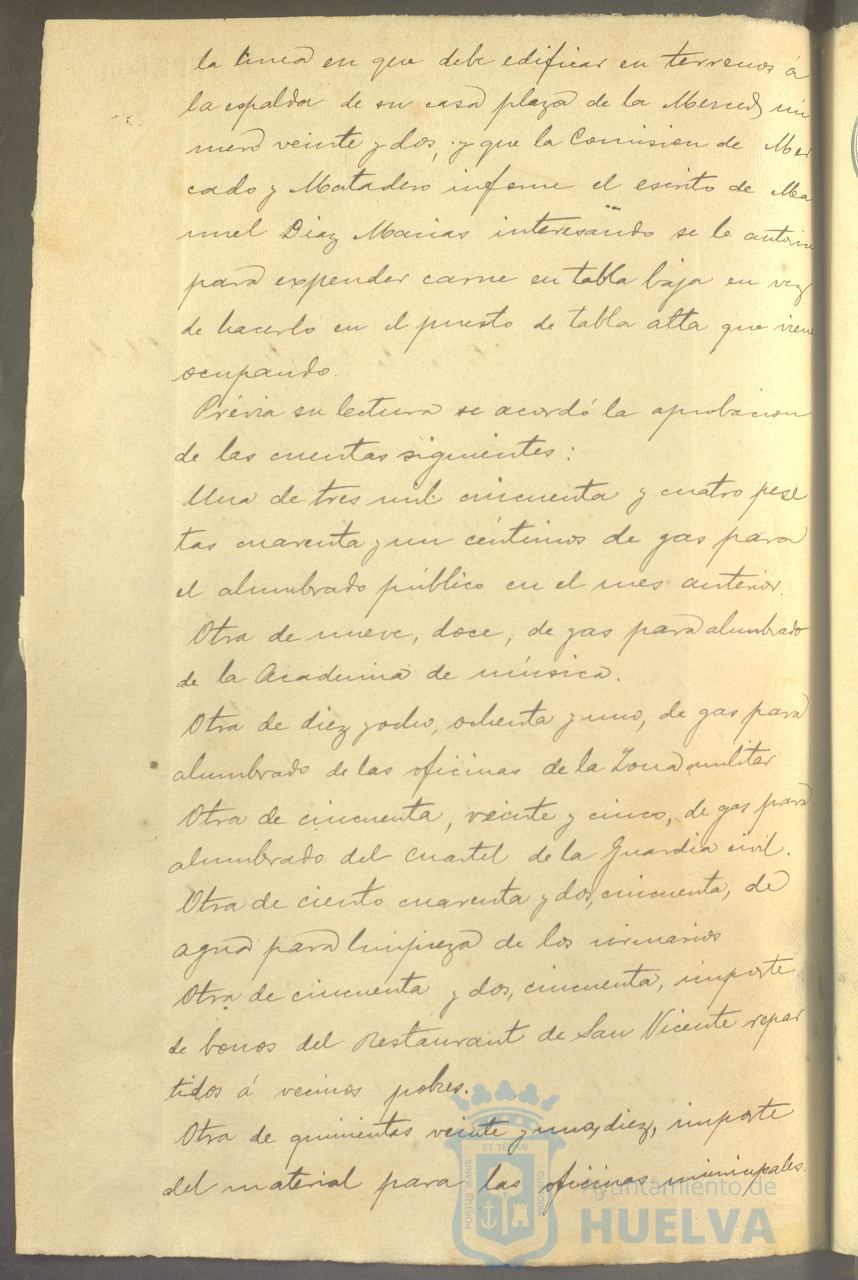 la linea en que debe edificar en terrenos á
la espalda de su casa plaza de la Merced nú
mero veinte y dos, y que la Comision de Mer
cado y Matadero informe el escrito de Ma
nuel Diaz Macias interesando se le autorice
para expender carne en tabla baja en vez
de hacerlo en el puesto de tabla alta que viene
ocupando.
Prévia su lectura se acordó la aprobacion
de las cuentas siguientes:
Una de tres mil cincuenta y cuatro pese
tas cuarenta y un céntimos de gas para
el alumbrado público en el mes anterior.
Otra de nueve, doce, de gas para alumbrado
de la Academia de música.
Otra de diez y ocho, ochenta y uno, de gas para
alumbrado de las oficinas de la Zona militar
Otra de cincuenta, veinte y cinco, de gas para
alumbrado del Cuartel de la Guardia civil.
Otra de ciento cuarenta y dos, cincuenta, de
agua para limpieza de los urinarios
Otra de cincuenta y dos, cincuenta, importe
de bonos del Restaurant de San Vicente repar
tidos á vecinos pobres.
Otra de quinientas veinte y una, diez, importe
del material para las oficinas municipales.
PORTUS MARIS
ET TERRAE
CUSTODIA
Ayuntamiento de
HUELVA